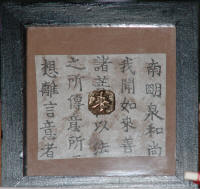 南明泉和尚
我聞如來善
諸 以法
之所傳意所
想離言意者